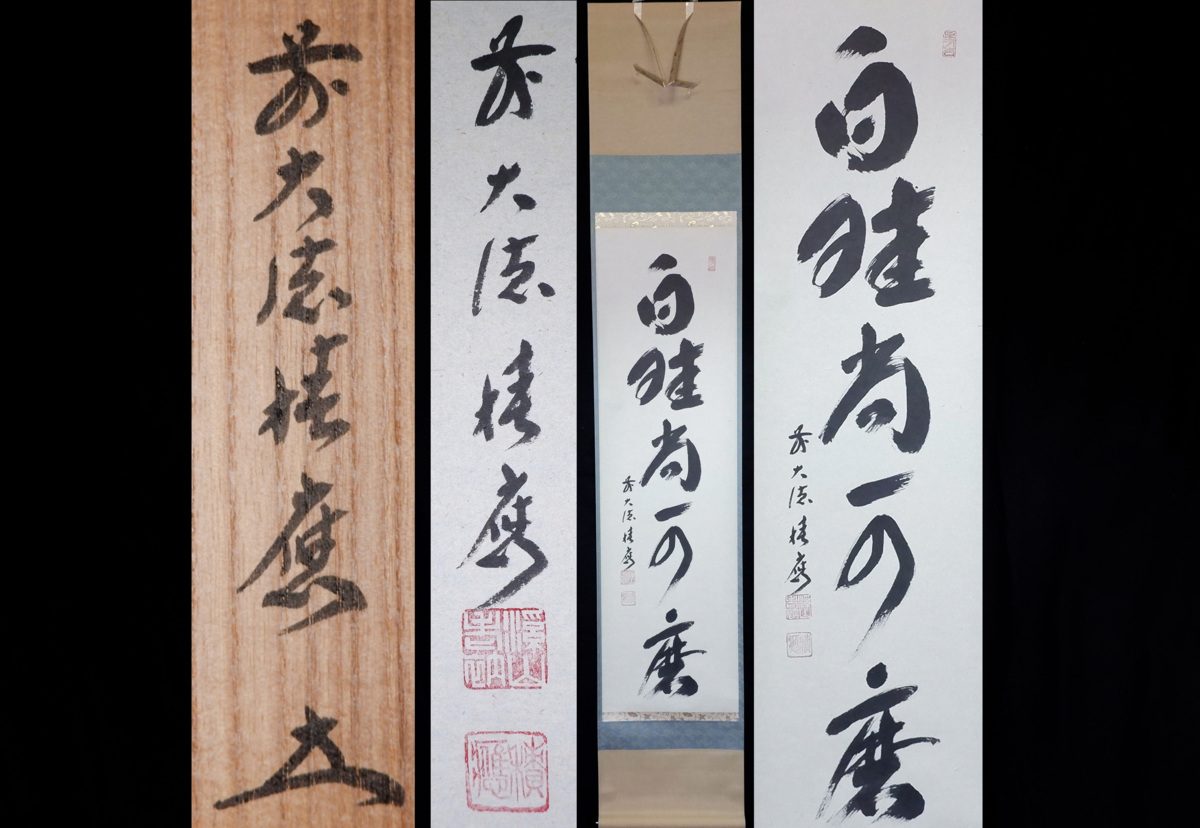 前大徳積應
前大徳積應
積應
白珪尚可磨
前大徳積應
白珪尚可磨
前大徳積應